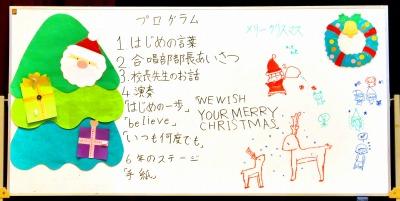 プログラム
1.はじめの言葉
2.合唱部部長あいさつ
3.校長先生のお話
4.演奏
「はじめの一歩」
「believe」
「いつも何度でも」
「WE WISH
YOUR MERRY
CHRISTMAS」
6年のステージ
「手紙」
メリークリスマス